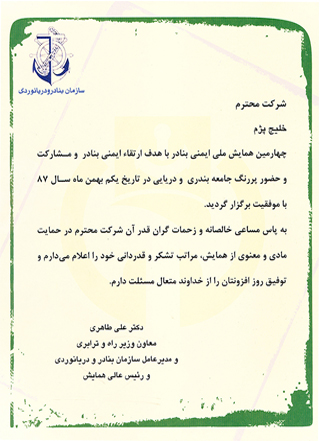 سازمان بنادر و دریانوردی
شرکت محترم
خلیج پژم
چهارمین همایش ملی ایمنی بنادر با هدف ارتقاء ایمنی بنادر و مشارکت
و حضور پررنگ جامعه بندری و دریایی در تاریخ یکم بهمن ماه سال ۸۷
با موفقیت برگزار گردید.
به پاس مساعی خالصانه و زحمات گران قدر آن شرکت محترم در حمایت
مادی و معنوی از همایش، مراتب تشکر و قدردانی خود را اعلام می‌دارم و
توفیق روز افزونتان را از خداوند متعال مسئلت دارم.
دکتر علی طاهری
معاون وزیر راه و ترابری
و مدیرعامل سازمان بنادر و دریانوردی
و رئیس عالی همایش